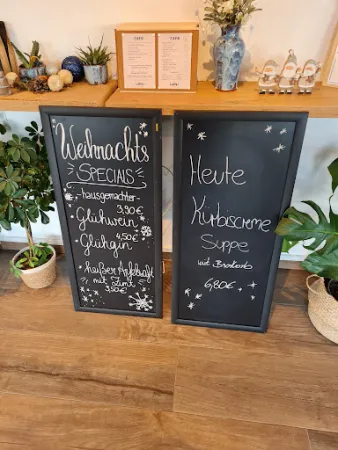 Weihnachts
SPECIALS
hausgemachter
3,90€
Glühwein
4,50€
Glühgin
heißer Apfelsaft
mit Zimt
3,50€
Heute
Kürbiscreme
Suppe
mit Brotkorb
6,80€